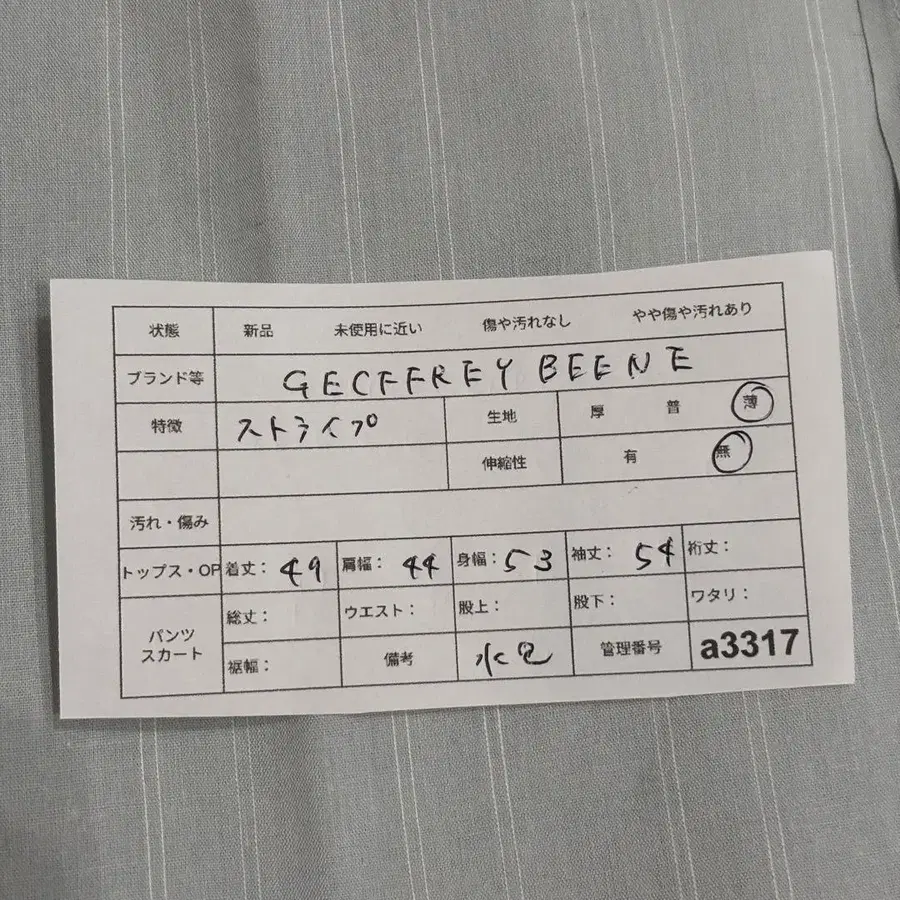 状態 新品 未使用に近い 傷や汚れなし やや傷や汚れあり
ブランド等 GECFFREY BEENE
特徴 ストライプ 生地 厚 普 薄
伸縮性 有 無
汚れ・傷み
トップス・OP 着丈: 49 肩幅: 44 身幅: 53 袖丈: 54 裄丈:
パンツ スカート 総丈: ウエスト: 股上: 股下: ワタリ:
裾幅: 備考 水色 管理番号 a3317